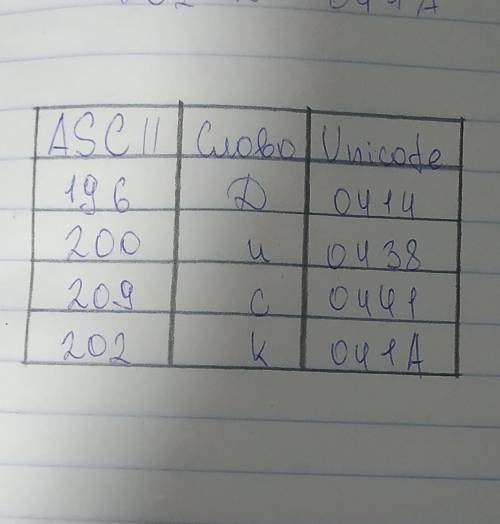 ASCII Слово Unicode
196 Д 0414
200 и 0438
209 с 0441
202 к 041A